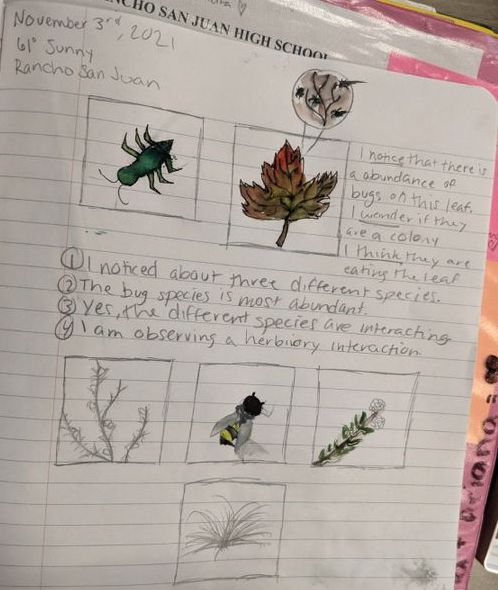 RANCHO SAN JUAN HIGH SCHOOL
November 3rd, 2021
61° Sunny
Rancho San Juan
I notice that there is
a abundance of
bugs on this leaf.
I wonder if they
are a colony
I think they are
eating the leaf
① I noticed about three different species.
② The bug species is most abundant.
③ Yes, the different species are interacting
④ I am observing a herbivory interaction.